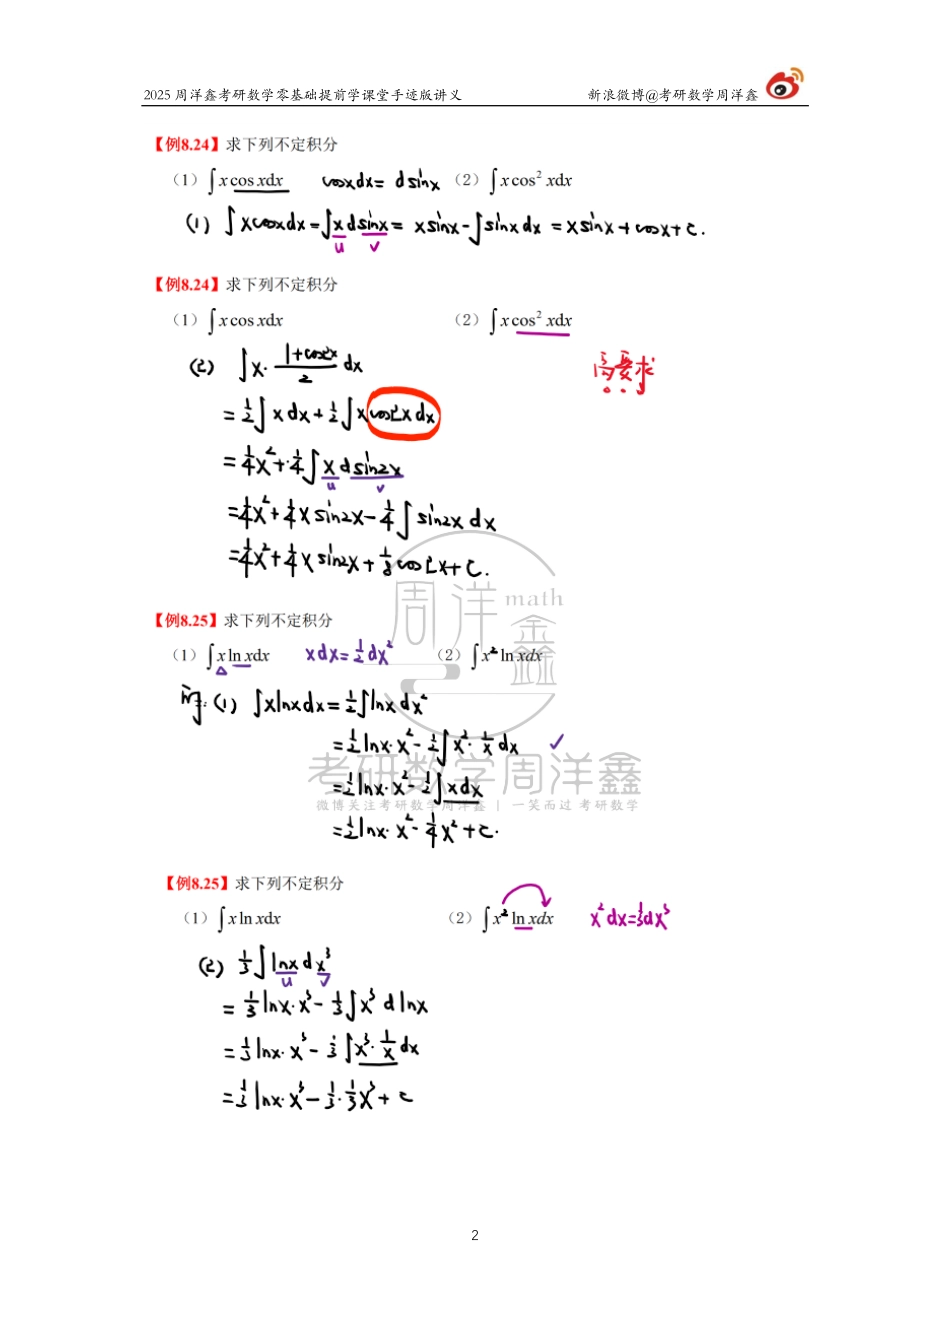 2025 周洋鑫考研数学零基础提前学课堂手迹版讲义 新浪微博@考研数学周洋鑫
【例8.24】求下列不定积分
（1）∫x cos xdx cosxdx = dsinx （2）∫x cos² xdx
(1) ∫xcosxdx = ∫xdsinx = xsinx - ∫sinxdx = xsinx + cosx + C.
u v
【例8.24】求下列不定积分
（1）∫x cos xdx （2）∫x cos² xdx
(2) ∫x· (1+cos2x)/2 dx 高要求
= 1/2∫xdx + 1/2∫xcos2xdx
= 1/4x² + 1/4∫xdsin2x
u v
= 1/4x² + 1/4xsin2x - 1/4∫sin2xdx
= 1/4x² + 1/4xsin2x + 1/8cos2x + C.
周洋鑫 math
【例8.25】求下列不定积分
（1）∫x ln xdx xdx = 1/2dx² （2）∫x² ln xdx
解: (1) ∫xlnxdx = 1/2∫lnxdx²
= 1/2lnx·x² - 1/2∫x²·1/x dx ✓
考研数学周洋鑫
= 1/2lnx·x² - 1/2∫xdx
微博关注考研数学周洋鑫 | 一笑而过 考研数学
= 1/2lnx·x² - 1/4x² + C.
【例8.25】求下列不定积分
（1）∫x ln xdx （2）∫x² ln xdx x²dx = 1/3dx³
(2) 1/3∫lnxdx³
u v
= 1/3lnx·x³ - 1/3∫x³dlnx
= 1/3lnx·x³ - 1/3∫x³·1/x dx
= 1/3lnx·x³ - 1/3·1/3x³ + C
2